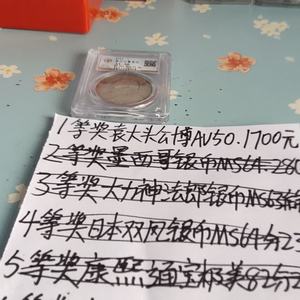 1等奖袁大头公博AU50.1700元
2等奖墨西哥银币MS64.280
3等奖大力神法郎银币MS63
4等奖日本双凤银币MS64分2
5等奖康熙通宝极美82分